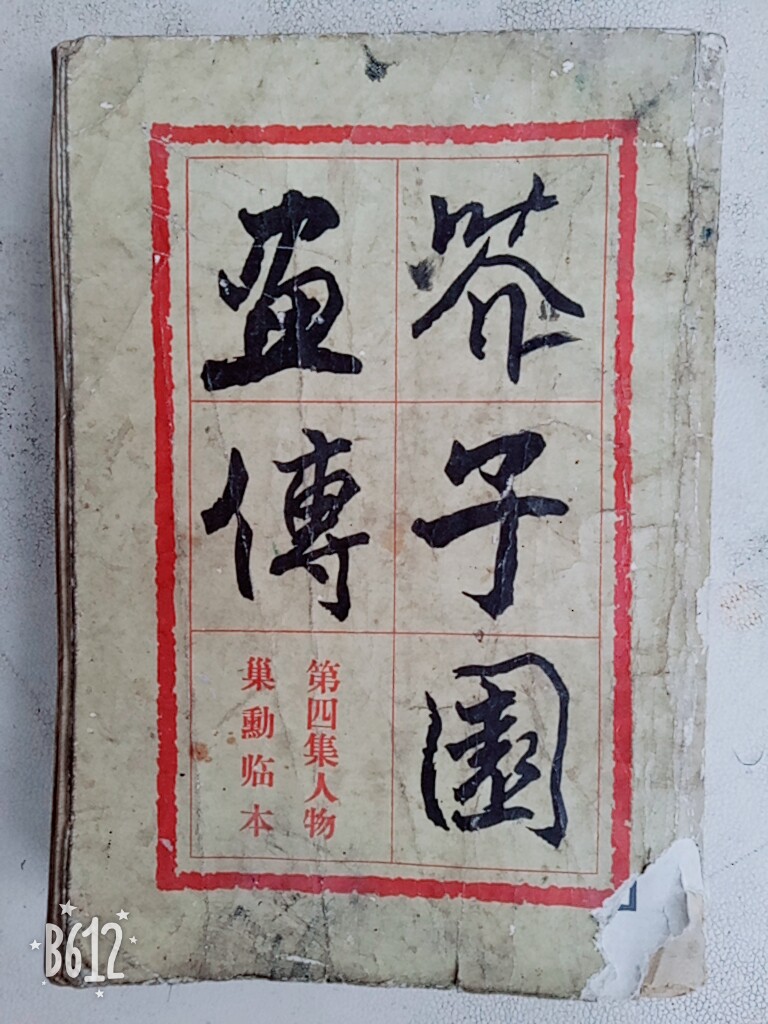 芥子園
畫傳
第四集人物
巢勳临本
B612